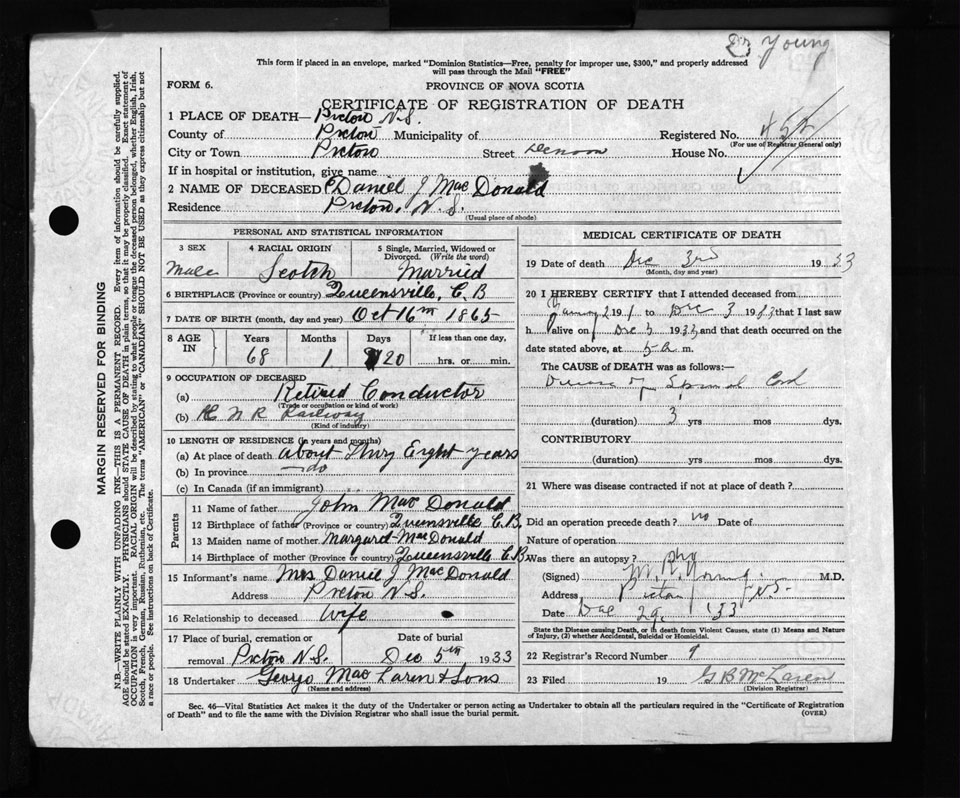 Dr Young
This form if placed in an envelope, marked "Dominion Statistics—Free, penalty for improper use, $300," and properly addressed
will pass through the Mail "FREE"
FORM 6.
PROVINCE OF NOVA SCOTIA
CERTIFICATE OF REGISTRATION OF DEATH
1 PLACE OF DEATH— Pictou N.S.
County of Pictou Municipality of Registered No.
(For use of Registrar General only)
City or Town Pictou Street Denoon House No.
If in hospital or institution, give name
2 NAME OF DECEASED Daniel J MacDonald
Residence Pictou, N.S.
(Usual place of abode)
PERSONAL AND STATISTICAL INFORMATION
3 SEX 4 RACIAL ORIGIN 5 Single, Married, Widowed or
Divorced. (Write the word)
Male Scotch Married
6 BIRTHPLACE (Province or country) Queensville, C.B
7 DATE OF BIRTH (month, day and year) Oct 16th 1865
8 AGE IN Years Months Days If less than one day,
68 1 20 hrs. or min.
9 OCCUPATION OF DECEASED
(a) Retired Conductor
(Trade or occupation or kind of work)
(b) C N R Railway
(Kind of industry)
10 LENGTH OF RESIDENCE (in years and months)
(a) At place of death about Thiry Eight years
(b) In province do
(c) In Canada (if an immigrant)
Parents
11 Name of father John MacDonald
12 Birthplace of father (Province or country) Queensville C.B.
13 Maiden name of mother Margaret MacDonald
14 Birthplace of mother (Province or country) Queensville C.B.
15 Informant's name Mrs Daniel J MacDonald
Address Pictou N.S.
16 Relationship to deceased Wife
17 Place of burial, cremation or Date of burial
removal Pictou N.S. Dec 5th 1933
18 Undertaker George MacLaren & Sons
(Name and address)
MEDICAL CERTIFICATE OF DEATH
19 Date of death Dec 3rd 1933
(Month, day and year)
20 I HEREBY CERTIFY that I attended deceased from
to Dec 3 1933 that I last saw
h alive on Dec 3 1933 and that death occurred on the
date stated above, at 5 a.m.
The CAUSE of DEATH was as follows:—
Disease of Spinal Cord
(duration) 3 yrs mos dys.
CONTRIBUTORY
(duration) yrs mos dys.
21 Where was disease contracted if not at place of death?
Did an operation precede death? no Date of
Nature of operation
Was there an autopsy? no
(Signed) Young M.D.
Address Pictou N.S.
Date Dec 29 '33
State the Disease causing Death, or in death from Violent Causes, state (1) Means and Nature
of Injury, (2) whether Accidental, Suicidal or Homicidal.
22 Registrar's Record Number 9
23 Filed 19 G B McLaren
(Division Registrar)
Sec. 46—Vital Statistics Act makes it the duty of the Undertaker or person acting as Undertaker to obtain all the particulars required in the "Certificate of Registration
of Death" and to file the same with the Division Registrar who shall issue the burial permit. (OVER)
MARGIN RESERVED FOR BINDING
N.B.—WRITE PLAINLY WITH UNFADING INK—THIS IS A PERMANENT RECORD. Every item of information should be carefully supplied.
AGE should be stated EXACTLY. PHYSICIANS should STATE CAUSE OF DEATH in plain terms, so that it may be properly classified. Exact statement of
OCCUPATION is very important. RACIAL ORIGIN will be described by stating to what people or tongue the deceased person belonged, whether English, Irish,
Scotch, French, German, Russian, Ruthenian, etc. The terms "AMERICAN" or "CANADIAN" SHOULD NOT BE USED as they express citizenship but not
a race or people. See instructions on back of Certificate.